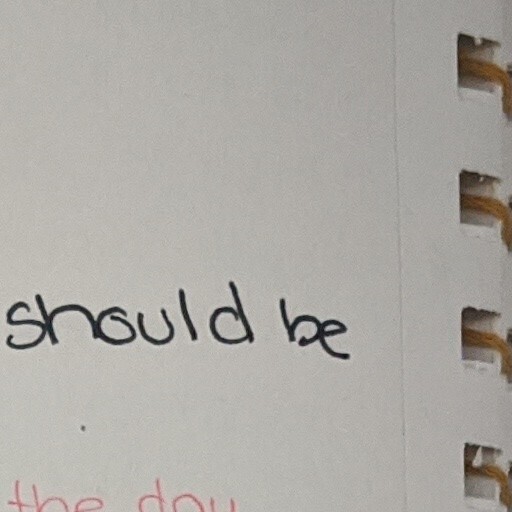 should be
the day